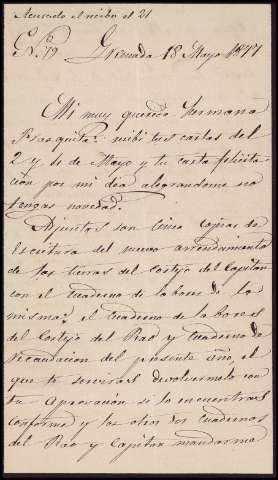 Acusado el recibo el 21
Granada 18 Mayo 1877
Mi muy querida hermana
Pasaquita: recibi tus cartas del
2 y 11 de Mayo y tu carta felicita
cion por mi dia alegrandome no
tengas novedad.
Adjuntas son cinco copias de
Escritura del nuevo arrendamiento
de las tierras del Cortijo del Capitan
con el Cuaderno de labores de la
misma: el Cuaderno de labores
del Cortijo del Rao y Cuaderno de
Recaudacion del presente año, el
que te serviras devolvermelo con
tu aprovacion si lo encuentras
conforme y los otros dos Cuadernos
del Rao y Capitan mandarme